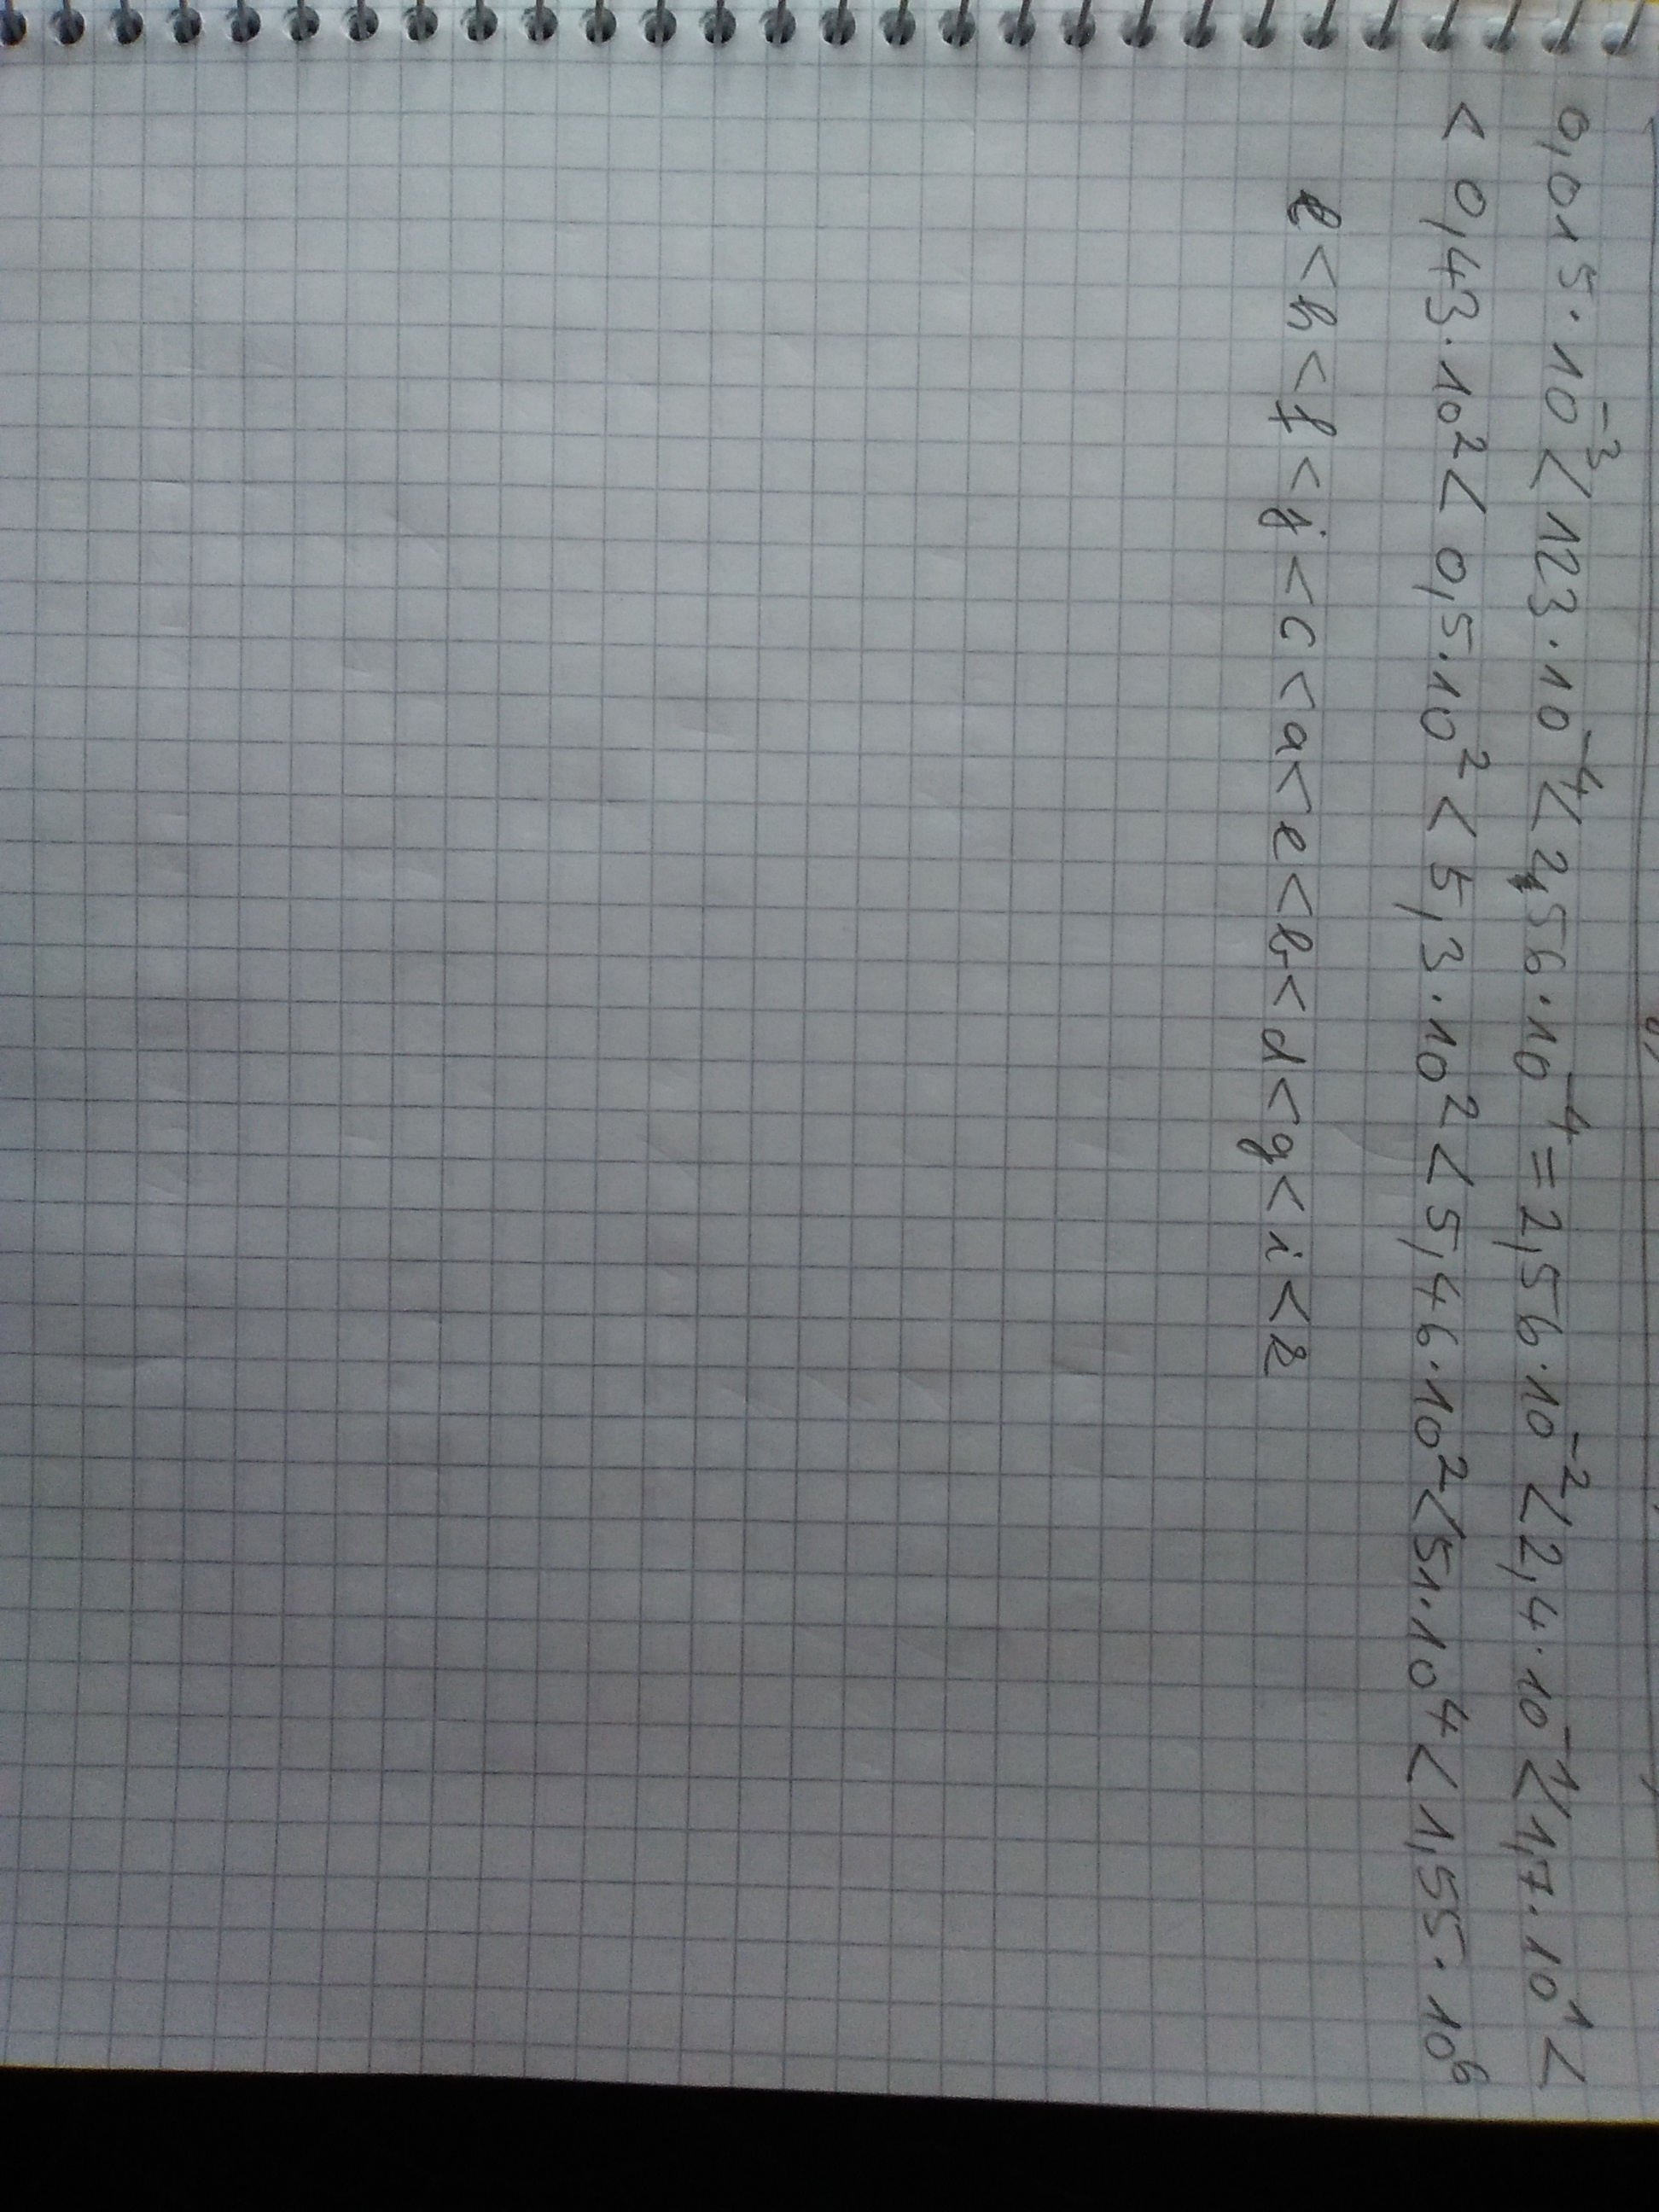 0,015·10⁻³ < 123·10⁻⁴ < 2,56·10⁻⁴ = 2,56·10⁻² < 2,4·10⁻¹ < 1,7·10¹ <
< 0,43·10² < 0,5·10² < 5,3·10² < 5,46·10² < 51·10⁴ < 1,55·10⁶
l < h < f < j < c < a < e < b < d < g < i < k